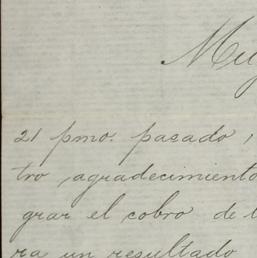 Muy
21 pmo. pasado,
tro agradecimiento
grar el cobro de l
ra un resultado